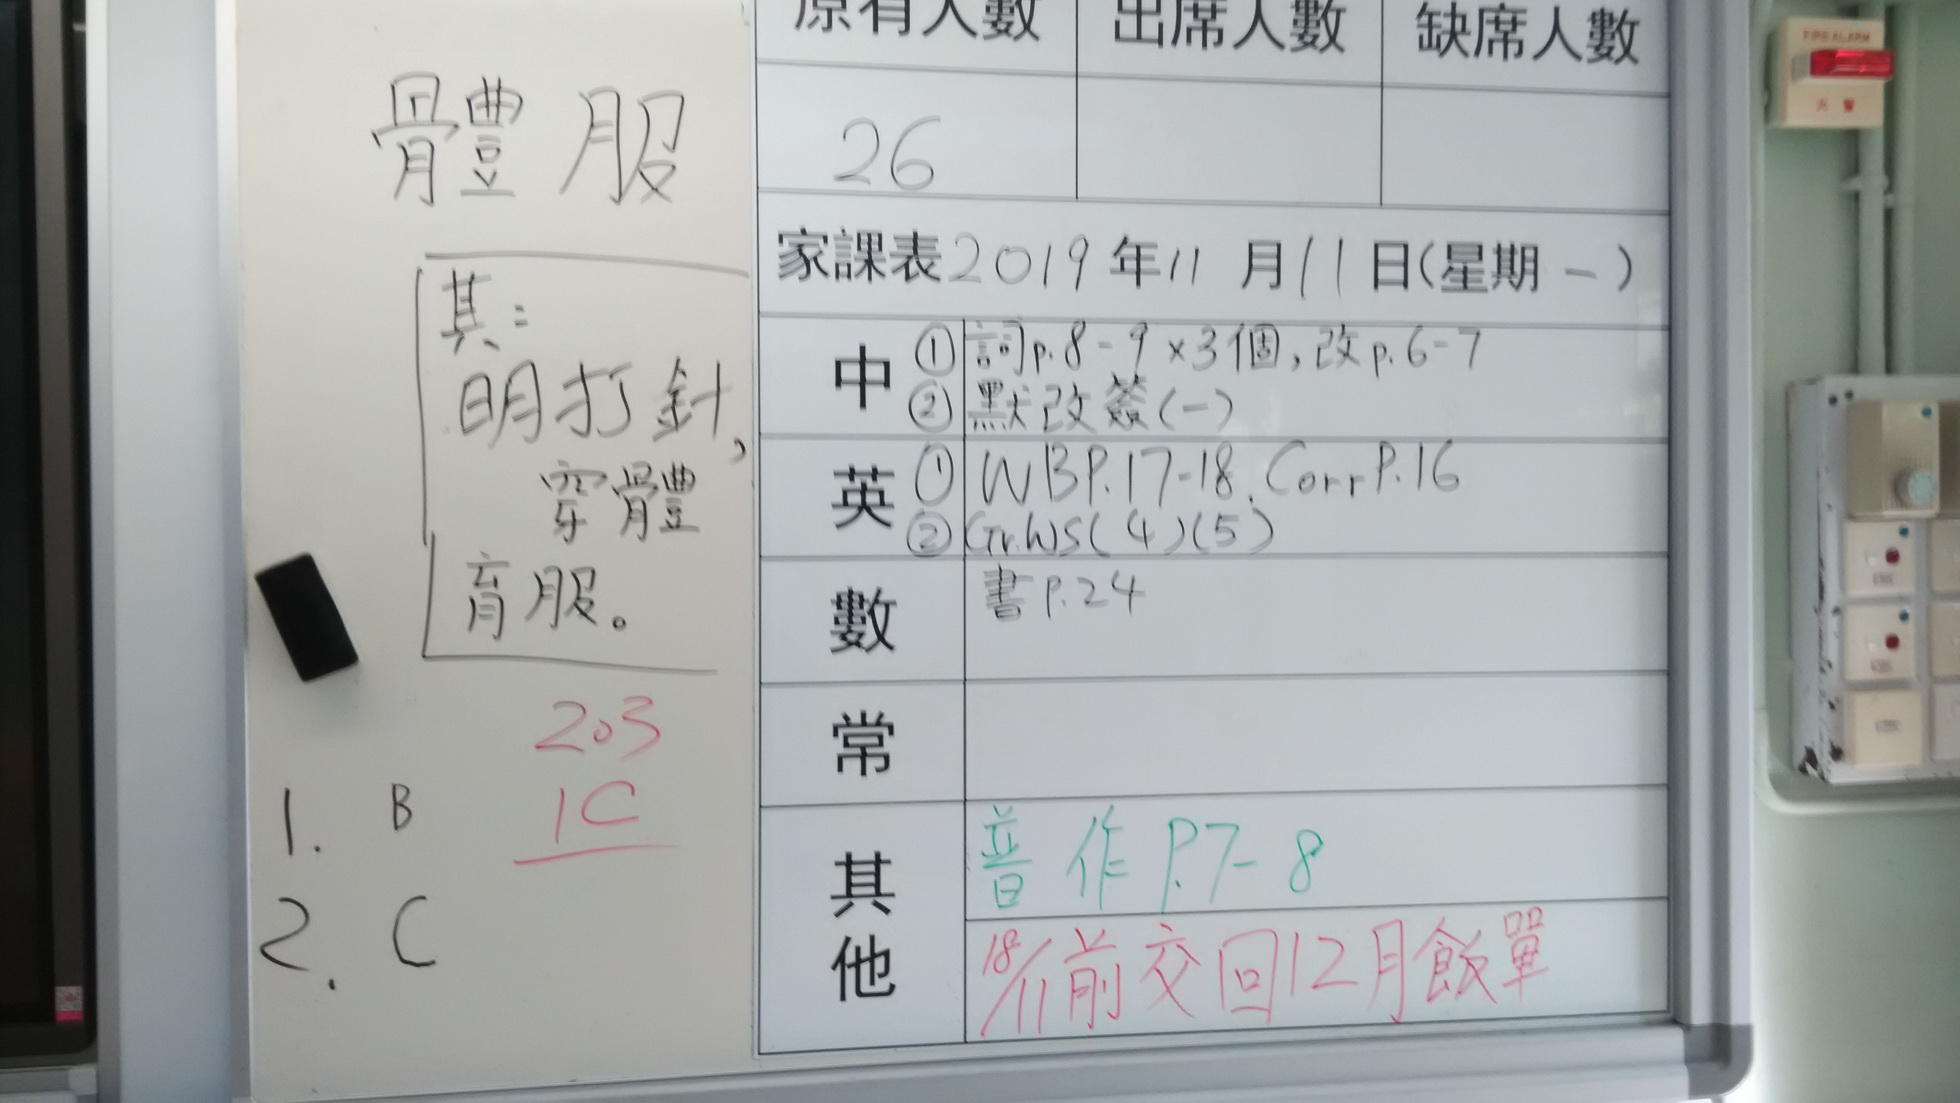 體服
其:
明打針,
穿體
育服。
203
1C
1. B
2. C
原有人數 出席人數 缺席人數
26
家課表2019年11月11日(星期一)
中 ①詞p.8-9×3個,改p.6-7
②默改簽(一)
英 ①WBP.17-18.CorrP.16
②Gr.WS(4)(5)
數 書P.24
常
其他
普作P.7-8
18/11前交回12月飯單
FIRE ALARM
火警